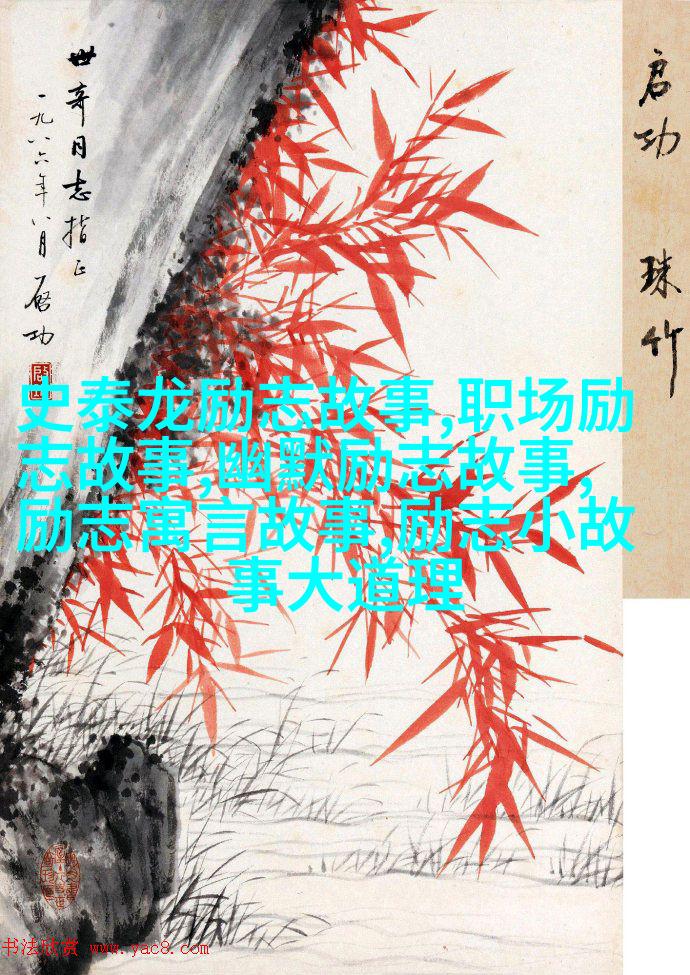 世奇同志指正
一九八六年八月 启功
启功 珠竹
史泰龙励志故事,职场励
志故事,幽默励志故事,
励志寓言故事,励志小故
事大道理
书法欣赏 www.yac8.com